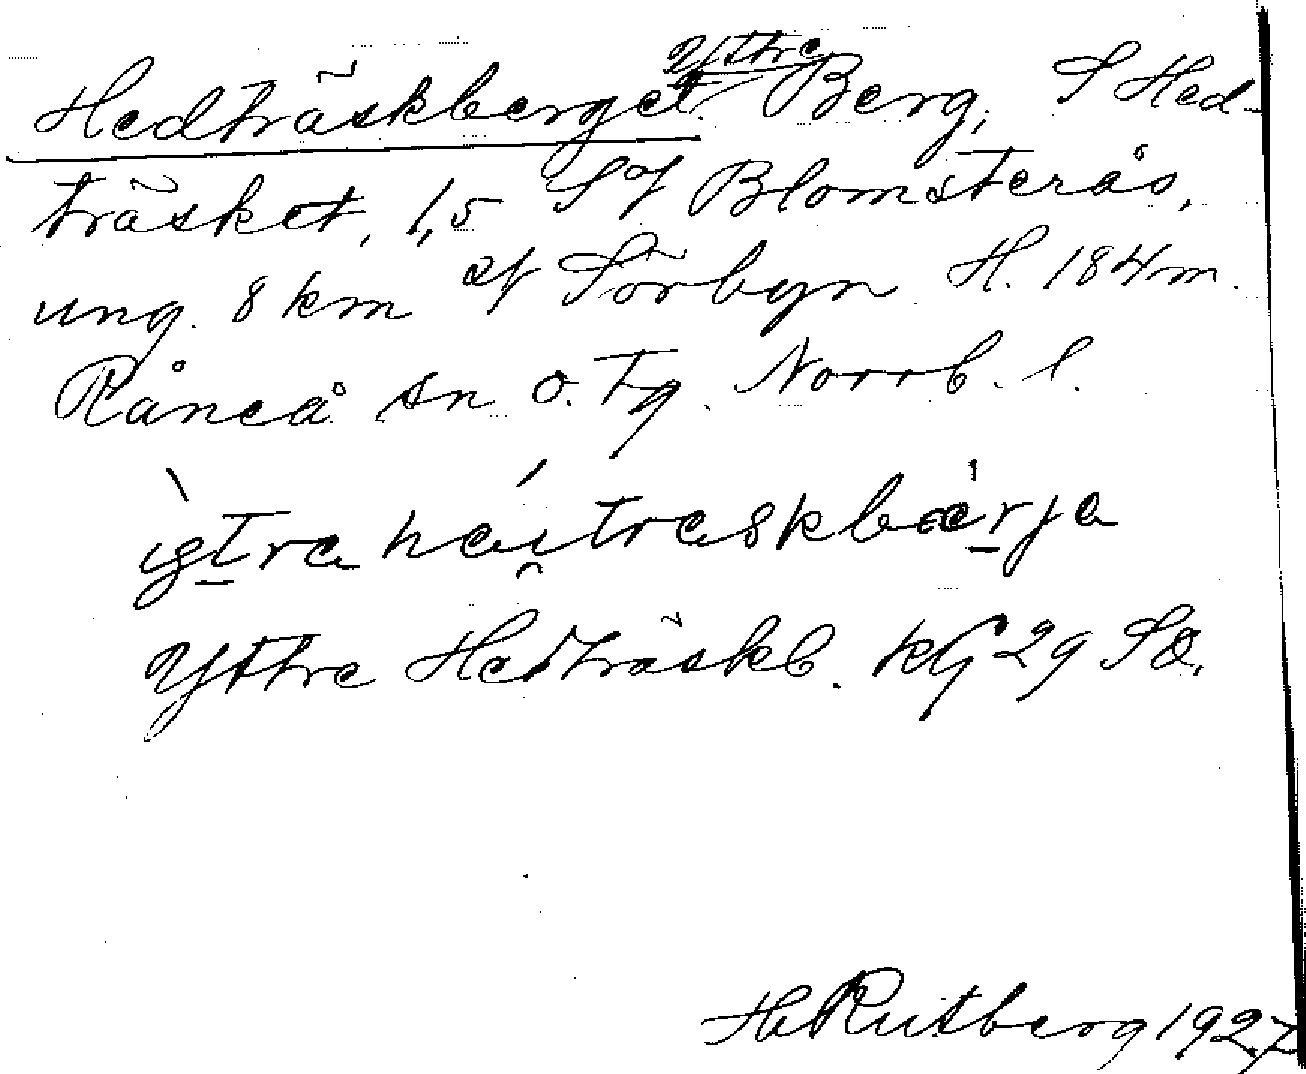 Hedträskberget, Yttre Berg, S Hed-
träsket, 1,5 S of Blomsterås,
ung. 8 km of Sörbyn H. 184 m.
Råneå sn o. tg. Norrb. l.
ỳtra héitraskbærja
Yttre Hedträskb. KG 29 SO.
H. Rutberg 1927